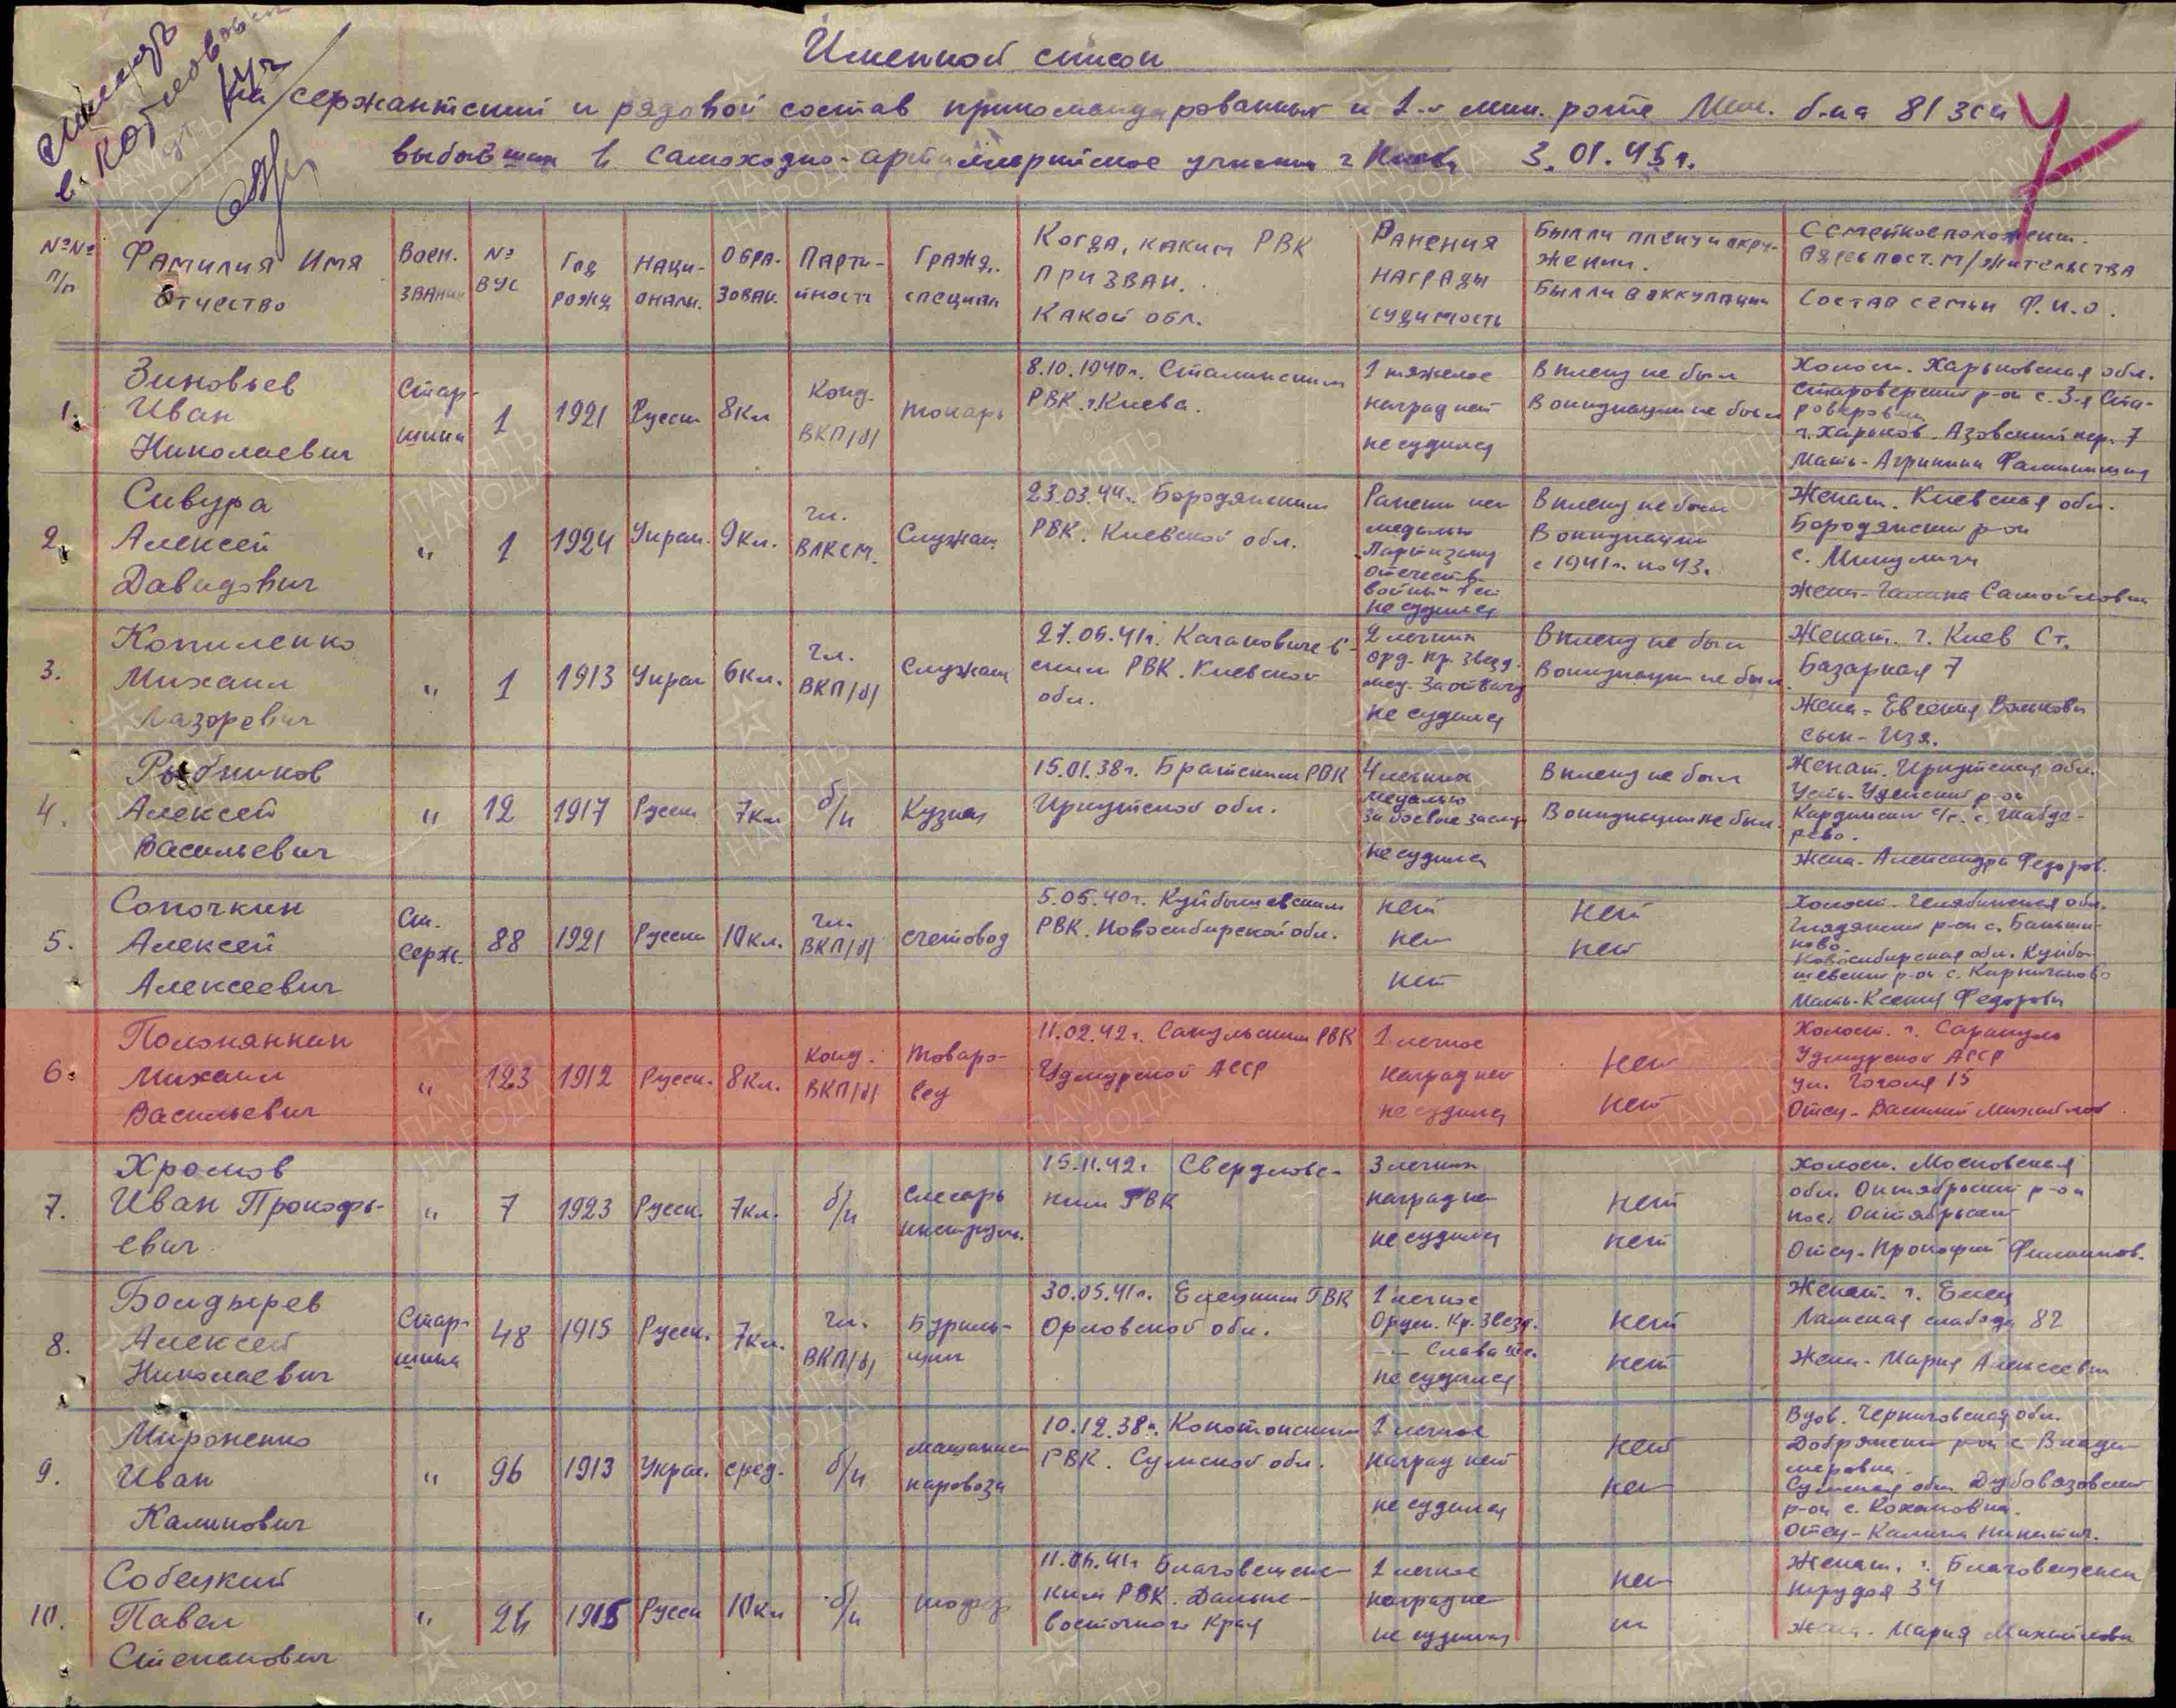 Именной список
на сержантский и рядовой состав прикомандированный к 1-й мин. роте Мин. б-на 81 зсп
выбывших в Самоходно-артиллерийское училище г. Киева 3.01.45 г.
№№ п/п
Фамилия Имя Отчество
Воен. звание
№ ВУС
Год рожд
Наци-ональн.
Обра-зован.
Парти-йность
Гражд. специальн
Когда, каким РВК
призван.
Какой обл.
Ранения
награды
судимость
Был ли плену и окру-
жении.
Был ли в оккупации
Семейное положение.
Адрес пост. м/жительства
Состав семьи Ф.И.О.
1. Зиновьев Иван Николаевич
Стар-шина
1
1921
Русск
8 кл
Канд. ВКП/б/
токарь
8.10.1940 г. Сталинским
РВК г. Киева.
1 тяжелое
наград нет
не судился
В плену не был
В оккупации не был
Холост. Харьковская обл.
Староверский р-он с. 3-я Ста-
роверовка
г. Харьков. Азовский пер. 7
Мать - Агрипина
2. Сивура Алексей Давидович
"
1
1924
Украи.
9 кл.
чл. ВЛКСМ.
Служащ.
23.03.44 г. Бородянским
РВК. Киевской обл.
Ранени нет
медалью
Партизану
отечеств.
войны 1 ст
не судился
В плену не был
В оккупации
с 1941 г. по 43 г.
Женат. Киевская обл.
Бородянский р-он
с. Микуличи
Жена - Галина Самойловна
3. Копиленко Михаил Лазоревич
"
1
1913
Украи
6 кл.
чл. ВКП/б/
Служащ
27.06.41 г. Кагановичев-
ским РВК. Киевской
обл.
2 легких
орд. Кр. Звезд.
мед. За отвагу
не судился
В плену не был
В оккупации не был.
Женат. г. Киев Ст.
Базарная 7
Жена - Евгения
сын - Изя.
4. Рыбников Алексей Васильевич
"
12
1917
Русск
7 кл
б/п
Кузнец
15.01.38 г. Братским РВК
Иркутской обл.
4 легких
медалью
За боевые заслуг
не судился
В плену не был
В оккупации не был.
Женат. Иркутская обл.
Усть-Удинский р-он
с/с. с.
Жена - Александра Федоров.
5. Сопочкин Алексей Алексеевич
Ст. Серж.
88
1921
Русск
10 кл.
чл. ВКП/б/
счетовод
5.05.40 г. Куйбышевским
РВК. Новосибирской обл.
нет
нет
нет
нет
нет
Холост. Челябинская обл.
Глядянский р-он с.
Новосибирская обл. Куйбы-
шевский р-он с.
Мать - Ксения Федоровн
6. Полянкин Михаил Васильевич
"
123
1912
Русск.
8 кл.
Канд. ВКП/б/
Товаро-вед
11.02.42 г. Сапульским РВК
Удмурской АССР
1 легкое
наград нет
не судился
нет
нет
Холост. г. Сарапуль
Удмурской АССР
ул. Гоголя 15
Отец - Василий Михайлов
7. Хромов Иван Прокофь-евич
"
7
1923
Русск.
7 кл.
б/п
слесарь инструм.
15.11.42 г. Свердловс-
ким ГВК
3 легких
наград нет
не судился
нет
нет
Холост. Московская
обл. Октябрьский р-он
пос. Октябрьский
Отец - Прокофий Филиппов.
8. Болдырев Алексей Николаевич
Стар-шина
48
1915
Русск.
7 кл.
чл. ВКП/б/
Буриль-щик
30.05.41 г. Елецким ГВК
Орловской обл.
1 легкое
Орден. Кр. Звезд.
-"- Слава IIIс.
не судился
нет
нет
Женат. г. Елец
Ламская слобода 82
Жена - Мария Алексеевн
9. Мироненко Иван Калинович
"
96
1913
Украи.
сред.
б/п
машинист паровоза
10.12.38 г. Конотопским
РВК. Сумской обл.
1 легкое
наград нет
не судился
нет
нет
Вдов. Черниговская обл.
Добрянский р-он с. Влади-
мировка.
Сумская обл. Дубовязовский
р-он с. Кохановка.
Отец - Калина Никитич.
10. Собецкий Павел Степанович
"
26
1915
Русск
10 кл
б/п
шофер
11.06.41 г. Благовещенс-
ким РВК. Дальне-
восточного Края
1 легкое
наград не
не судился
нет
нет
Женат. г. Благовещенск
34
Жена - Мария Михайловн
ПАМЯТЬ НАРОДА